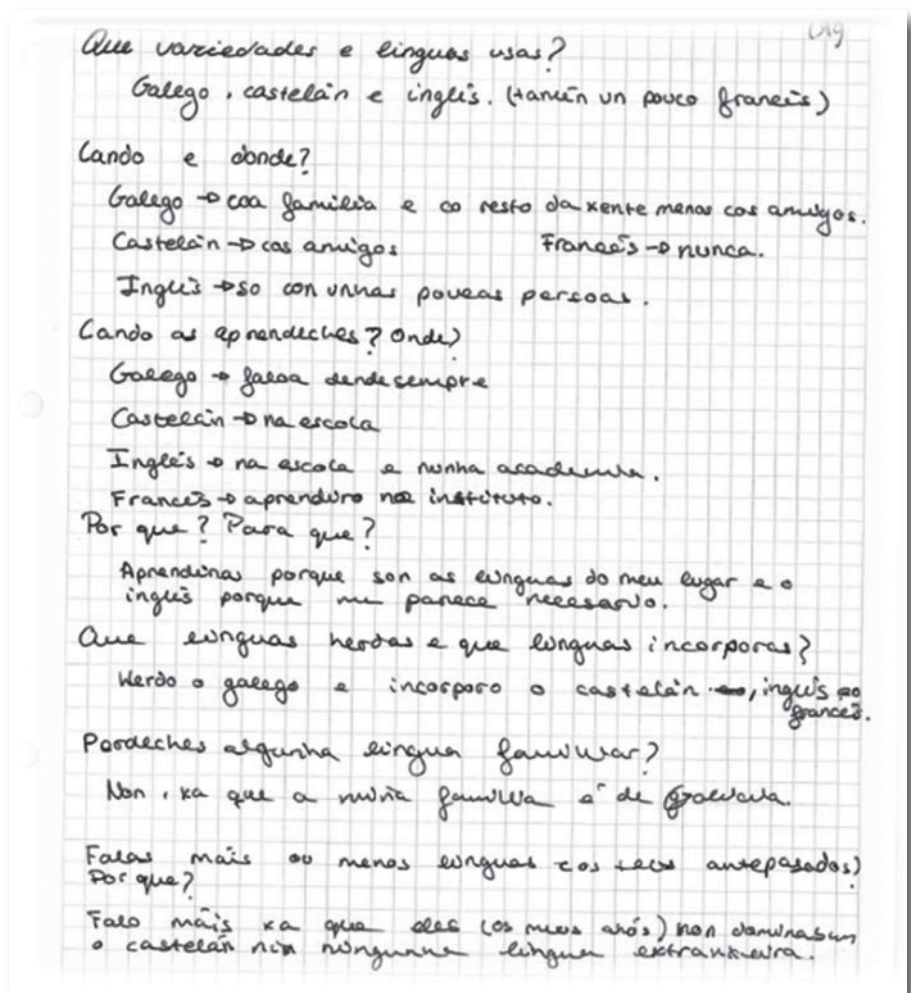 Que variedades e linguas usas?
Galego, castelán e inglés. (tamén un pouco francés)
Cando e donde?
Galego → coa familia e co resto da xente menos cos amigos.
Castelán → cos amigos Francés → nunca.
Inglés → so con unhas poucas persoas.
Cando as aprendiches? Onde?
Galego → faloa dende sempre
Castelán → na escola
Inglés → na escola e nunha academia.
Francés → aprendino no instituto.
Por que? Para que?
Aprendinas porque son as linguas do meu lugar e o
inglés porque me parece necesario.
Que linguas herdas e que linguas incorporas?
Herdo o galego e incorporo o castelán, inglés e o
francés.
Perdeches algunha lingua familiar?
Non, xa que a miña familia é de Galicia.
Falas máis ou menos linguas cos teus antepasados?
Por que?
Falo máis xa que eles (os meus avós) non dominaban
o castelán nin ningunha lingua extranxeira.